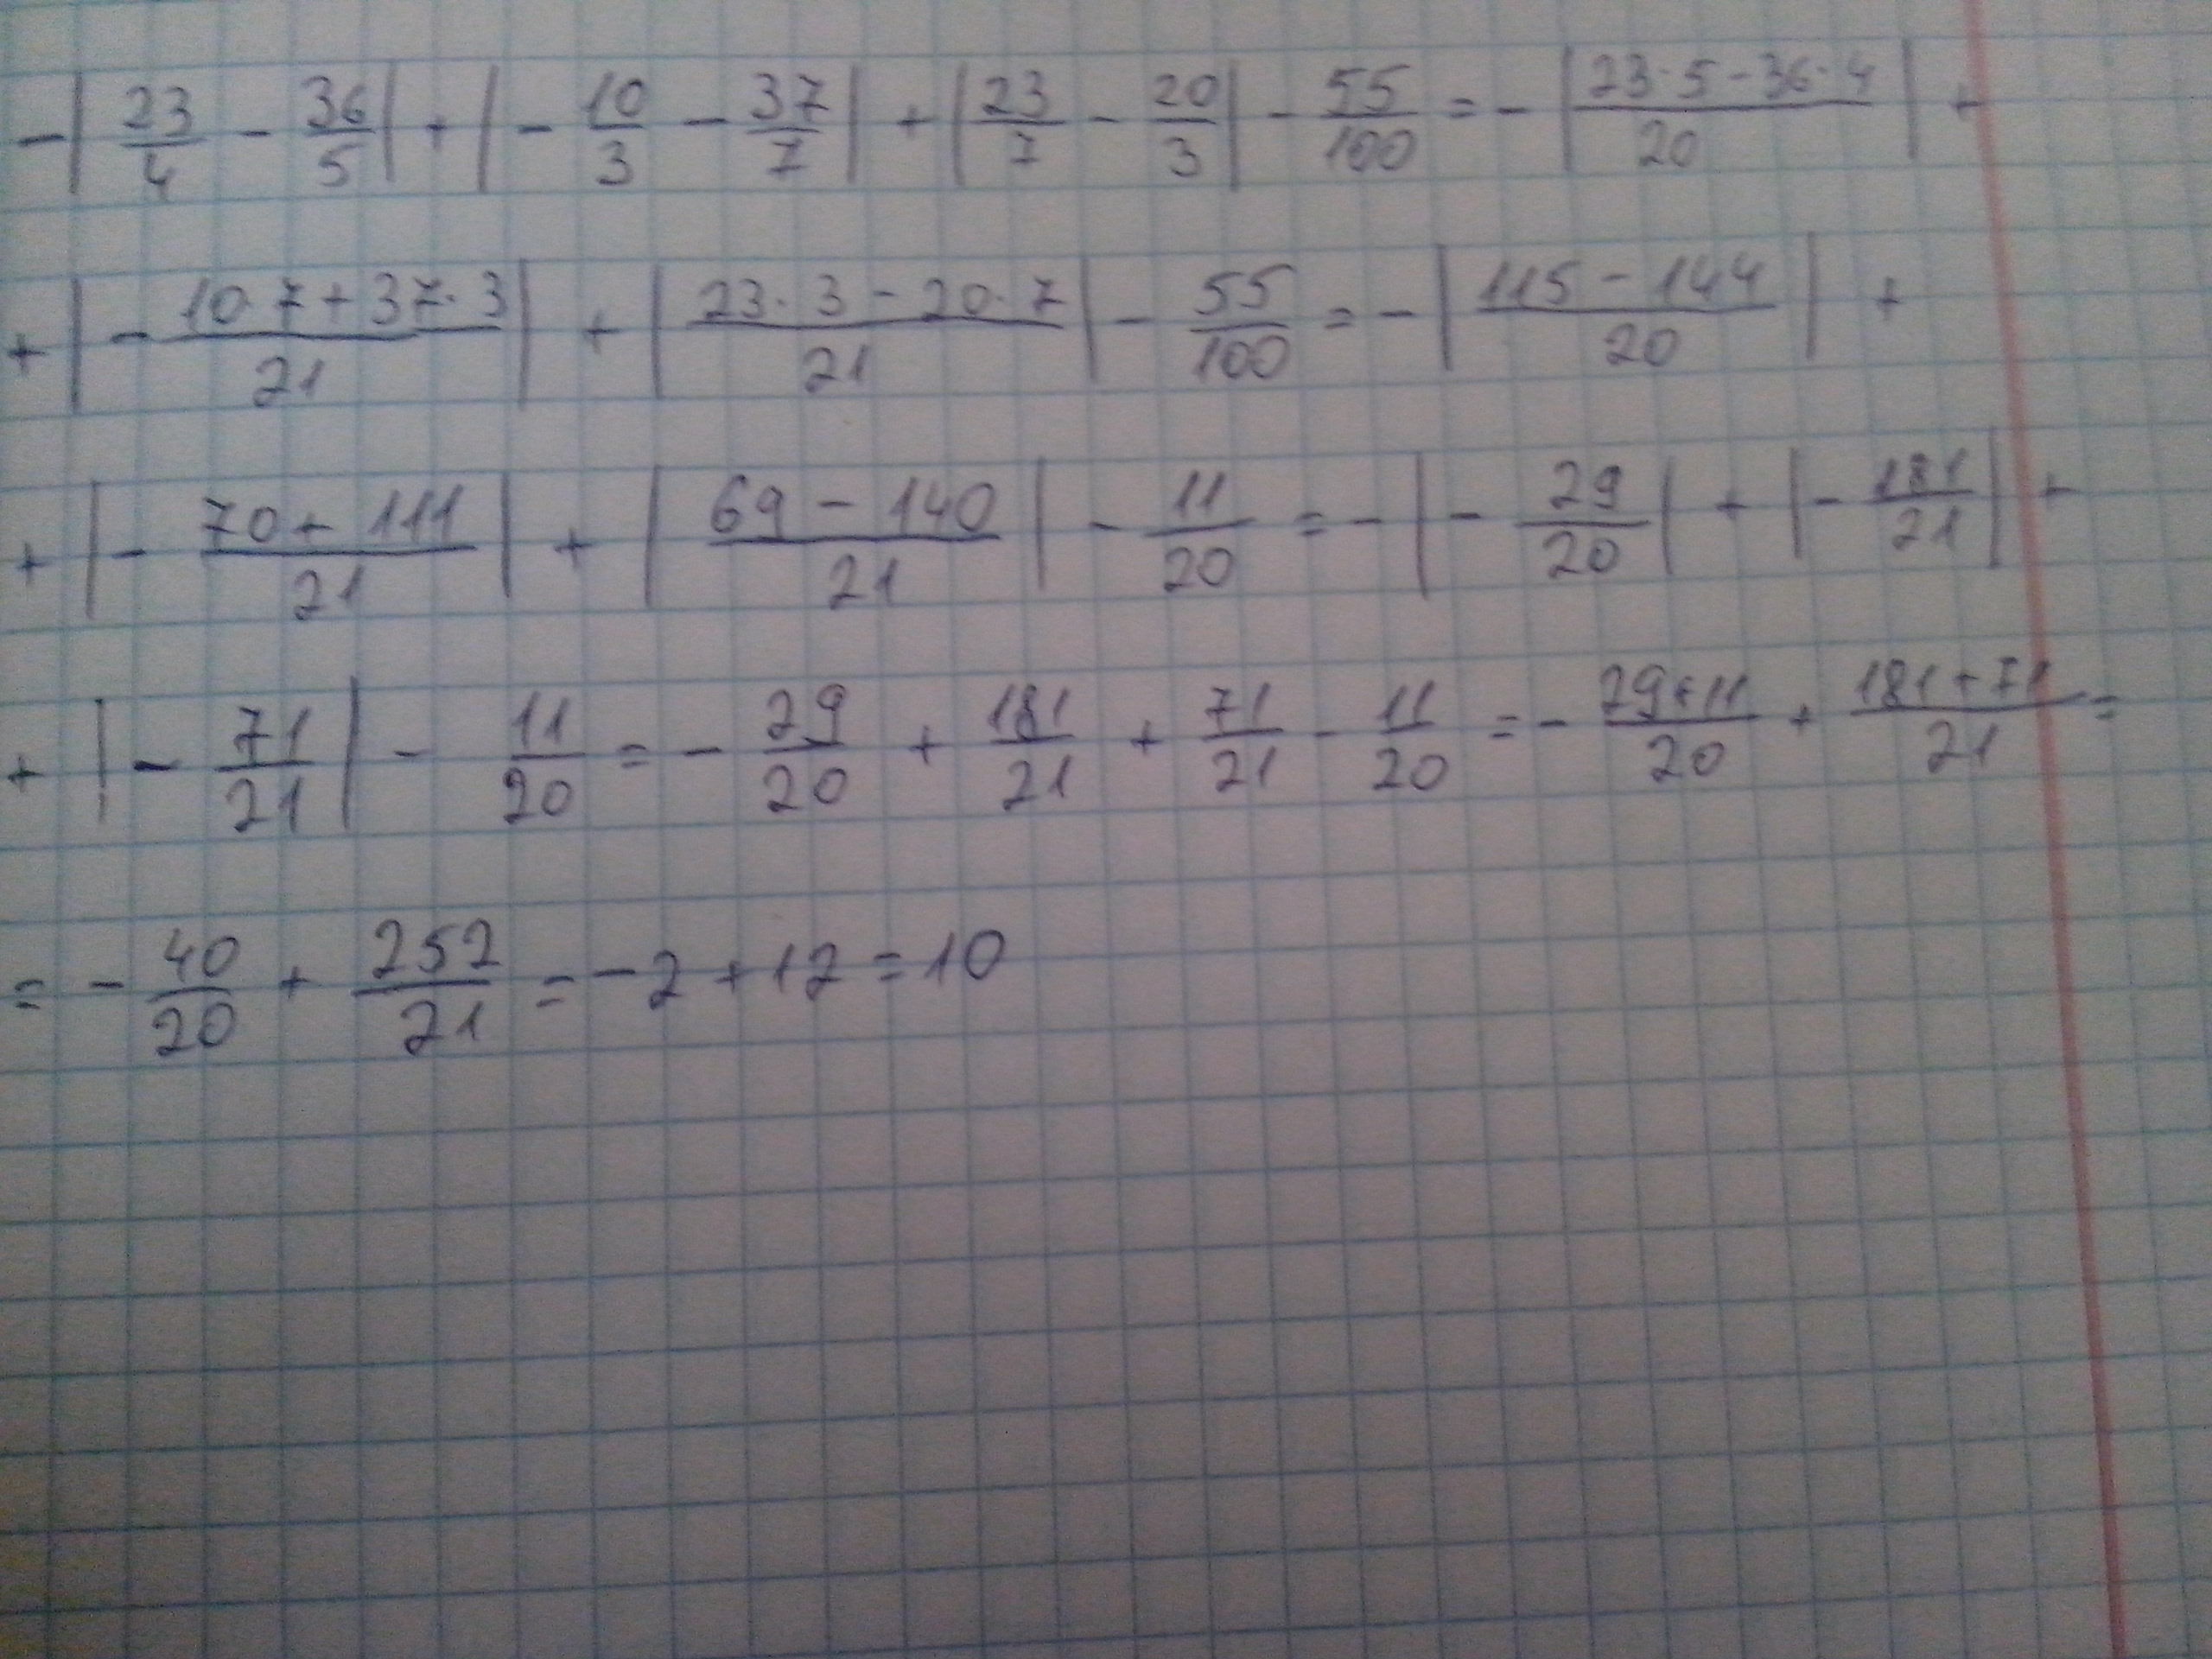 -|23/4 - 36/5| + |-10/3 - 37/7| + |23/7 - 20/3| - 55/100 = -|(23·5-36·4)/20| +
+ |-(10·7+37·3)/21| + |(23·3-20·7)/21| - 55/100 = -|(115-144)/20| +
+ |-(70+111)/21| + |(69-140)/21| - 11/20 = -|-29/20| + |-181/21| +
+ |-71/21| - 11/20 = -29/20 + 181/21 + 71/21 - 11/20 = -(29+11)/20 + (181+71)/21 =
= -40/20 + 252/21 = -2+12=10